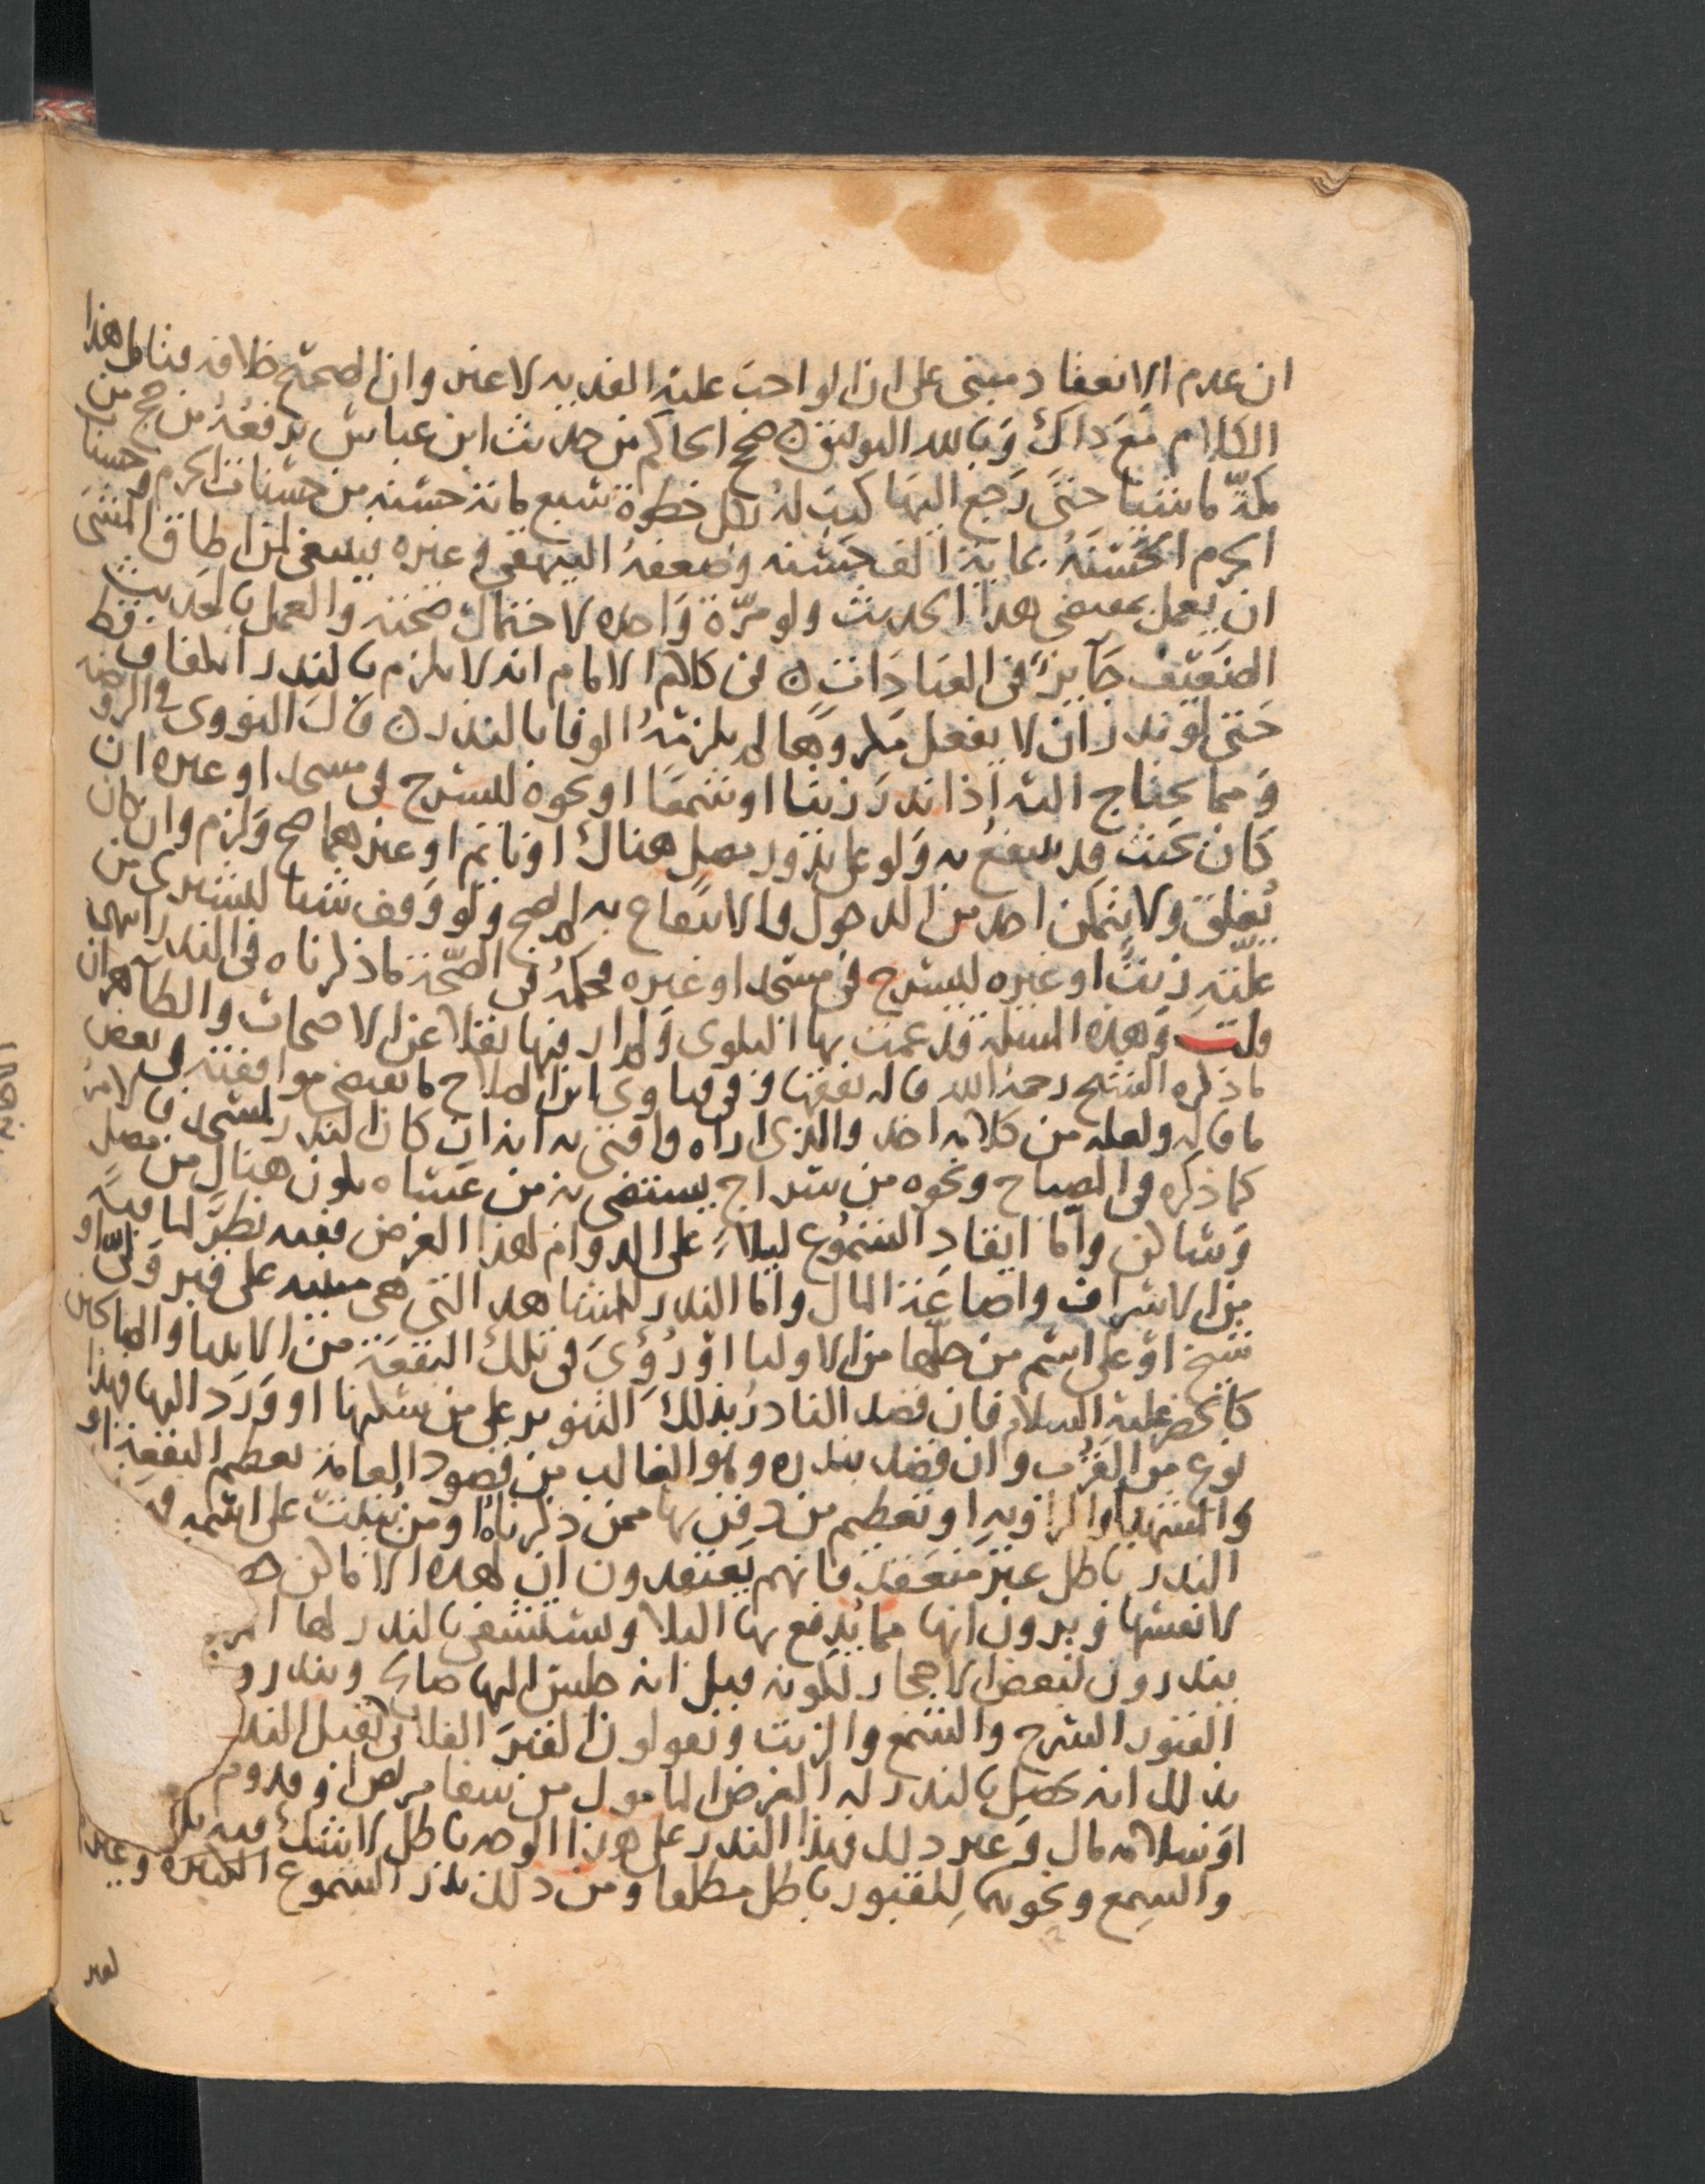 ان عدم الانعقاد مبنى على ان الواجب عليه الفديه لا عير وان الصحيح خلافه فتامل هذا
الكلام مع ذاك وبالله التوفيق ن صحح الحاكم من حديث ابن عباس يرفعه من حج من
مكة ماشيا حتى رجع اليها كتب له بكل خطوة سبع مائة حسنه من حسنات الحرم وحسنات
الحرم الحسنة بماية الف حسنه وضعفه البيهقي وغيره ينبغي لمن اطاق المشي
ان يعمل بمقتضى هذا الحديث ولو مرة واحده لاحتمال صحته والعمل بالحديث
الضعيف جايز في العبادات ن في كلام الامام انه لا يلزم بالنذر انكفاف قط
حتى لو نذر ان لا يفعل مكروها لم يلزمه الوفا بالنذر ن قال النووي في الروضه
ومما يحتاج اليه اذا نذر زيتا او شمعا او نحوه ليسرج في مسجد او غيره ان
كان بحيث قد ينتفع به ولو على ندور مصل هناك او نايم او غيرهما صح ولزم وان كان
يغلق ولا يتمكن احد من الدخول والانتفاع به لم يصح ولو وقف شيا ليشترى من
غلته زيت او غيره ليسرج في مسجد او غيره فحكمه في الصحة ما ذكرناه في النذر انتهى
قلت وهذه المسئلة قد عمت بها البلوى ولم ار فيها نقلا عن الاصحاب والظاهر ان
ما ذكره الشيخ رحمه الله قاله تفقها و في فتاوى ابن الصلاح ما يقتضي موافقته في بعض
ما قاله ولعله من كلامه اخذ والذي اراه وافتى به انه ان كان النذر لمسجد فالامر
كما ذكره في المصباح ونحوه من سراج يستضي به من عساه يكون هناك من مصل
وساكن واما ايقاد الشموع ليلا على الدوام لهذا الغرض ففيه نظر لما فيه
من الاسراف واضاعة المال واما النذر للمشاهد التي هي مبنيه على قبر ولي او
شيخ او على اسم من حلها من الاوليا او رؤى في تلك البقعة من الانبيا والصالحين
كالخضر عليه السلام فان قصد الناذر بذلك التنوير على من يسكنها او ورد اليها فهذا
نوع من القرب وان قصد بنذره وهو الغالب من قصود العامة تعظيم البقعة او
والمشهد او الزاويه او تعظيم من دفن بها ممن ذكرناه او من بنيت على اسمه فه
النذر باطل غير منعقد فانهم يعتقدون ان لهذه الاماكن خ
لانفسها ويرون انها مما يدفع بها البلا ويستشفى بالنذر لها
ينذرون لبعض الاحجار لكونه قيل انه جلس اليها صالح وينذرو
القبور السرج والشمع والزيت ويقولون القبر الفلاني يقبل النذ
بذلك انه يحصل بالنذر له الغرض المامول من شفا مريض او قدوم
او سلامه مال وغير ذلك فهذا النذر على هذا الوجه باطل لا شك فيه بل
والشمع ونحوهما للقبور باطل مطلقا ومن ذلك نذر الشموع الكثيره وغيرها
لقبر